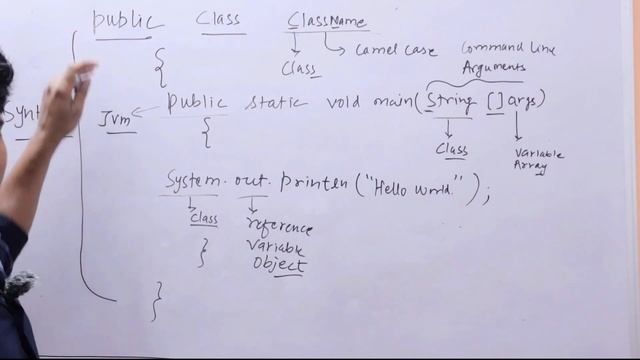 public class ClassName
Class camel case Command line
Arguments
{
Jvm public static void main(String []args)
{ Class Variable
Array
System.out.println("Hello World.");
class reference
} Variable
Object
}